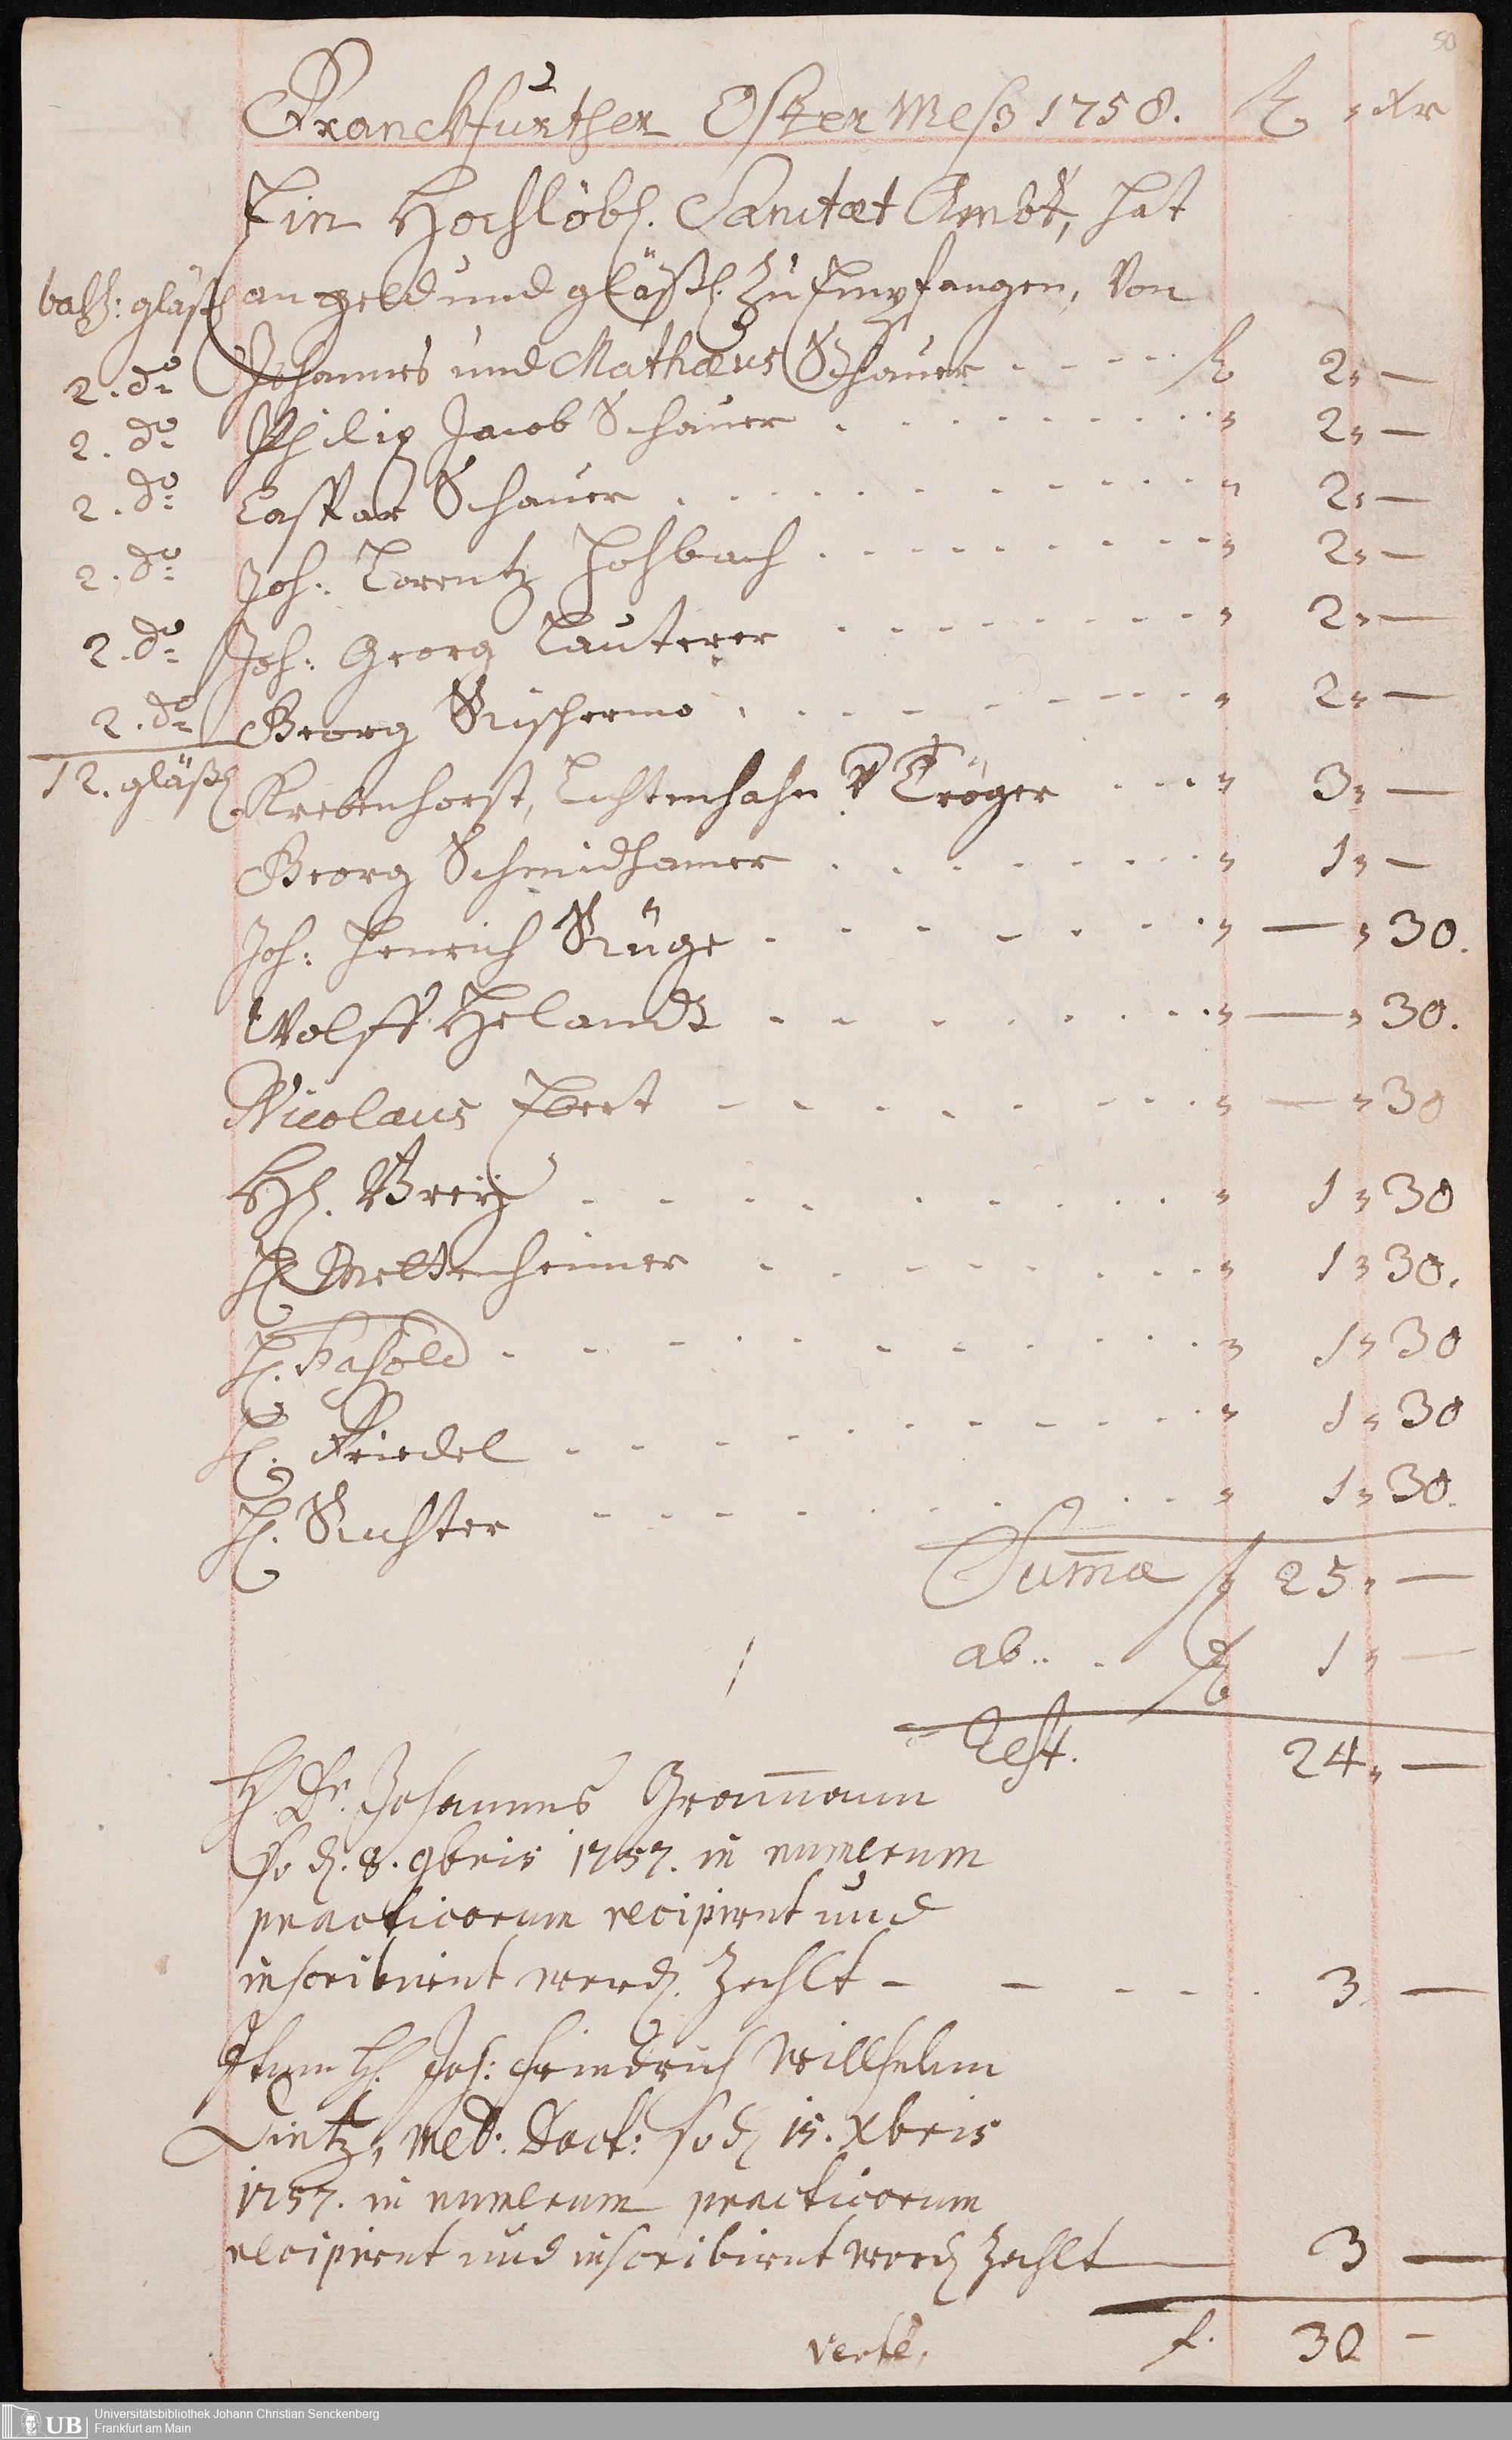 50
Franckfurther Oster Mess 1758. fl " Xr
Ein Hochlöbl. Sanitæt Ambt, hat
bals: gläßl an geld und gläßl. Zu Empfangen, Von
2. do Johannes und Mathæus Schauer . . . . . . fl 2" —
2. do Philip Jacob Schauer . . . . . . . . " 2" —
2. do Caspar Schauer . . . . . . . . . . " 2" —
2. do Joh: Lorentz Hohbach . . . . . . . . " 2" —
2. do Joh: Georg Lauterer . . . . . . . . " 2" —
2. do Georg . . . . . . . . " 2" —
12. gläßl Krebenhorst, Lichtenhahn & Tröger . . . . " 3" —
Georg Schmidhamer . . . . . . . . " 1" —
Joh: Henrich Rüge . . . . . . . . " — " 30.
Wolff Helandt . . . . . . . . " — " 30.
Nicolaus Ebert . . . . . . . . " — " 30
HE. Breÿ . . . . . . . . . " 1" 30
H. Mettenheimer . . . . . . . . " 1" 30.
H. Fasold . . . . . . . . . . " 1" 30
H. Friedel . . . . . . . . . . " 1" 30
H. Richter . . . . . . . . . . " 1" 30.
Summa fl 25" —
ab.. . fl 1" —
Rest. 24" —
H. Dr. Johannes Grammann
so d. 8. 9bris 1757. in numerum
practicorum recipirt und
inscribirt word. Zahlt — — . . . 3. —
Item H. Joh: Friedrich Willhelm
Dietz, Med: Doct: so d 15. Xbris
1757. in numerum practicorum
recipirt und inscribirt word Zahlt 3 —
verte. f. 30 —
UB
Universitätsbibliothek Johann Christian Senckenberg
Frankfurt am Main